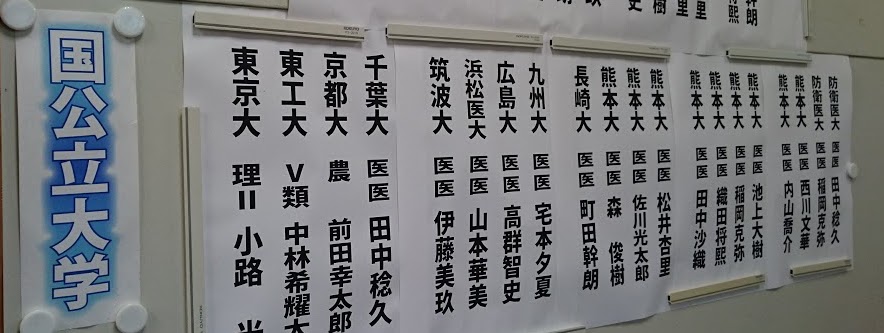 国公立大学
東京大 理Ⅱ 小路
東工大 Ⅴ類 中林希耀太
京都大 農 前田幸太郎
千葉大 医医 田中稔久
筑波大 医医 伊藤美玖
浜松医大 医医 山本華美
広島大 医医 高群智史
九州大 医医 宅本夕夏
長崎大 医医 町田幹朗
熊本大 医医 森 俊樹
熊本大 医医 佐川光太郎
熊本大 医医 松井杏里
熊本大 医医 田中沙織
熊本大 医医 織田将熙
熊本大 医医 稲岡克弥
熊本大 医医 池上大樹
熊本大 医医 内山喬介
熊本大 医医 西川文華
防衛医大 医医 稲岡克弥
防衛医大 医医 田中稔久